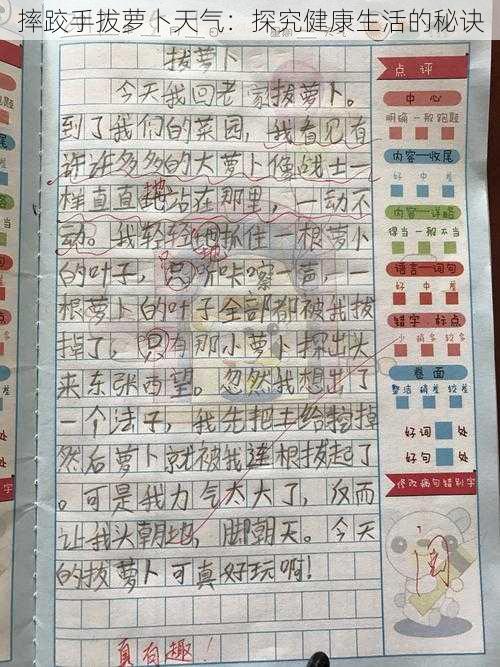 摔跤手拔萝卜天气：探究健康生活的秘诀
拔萝卜
今天我回老家拔萝卜。
到了我们的菜园，我看见有
许许多多的大萝卜像战士一
样直直地站在那里，一动不
动。我轻轻地抓住一根萝卜
的叶子，只听咔嚓一声，一
根萝卜的叶子全部都被我拔
掉了，只有那小萝卜探出头
来东张西望。忽然我想出了
一个法子，我先把土给挖掉
然后萝卜就被我连根拔起了
。可是我力气太大了，反而
让我头朝地，脚朝天。今天
的拔萝卜可真好玩啊！
真有趣！
点评
中心
明确 一般 跑题
内容—收尾
好 中 差
内容—详略
得当 一般 不当
语言—词句
好 中 差
错字、标点
少 稍多 较多
卷面
整洁 稍差 较差
好词 处
好句 处
修改病句错别字
月